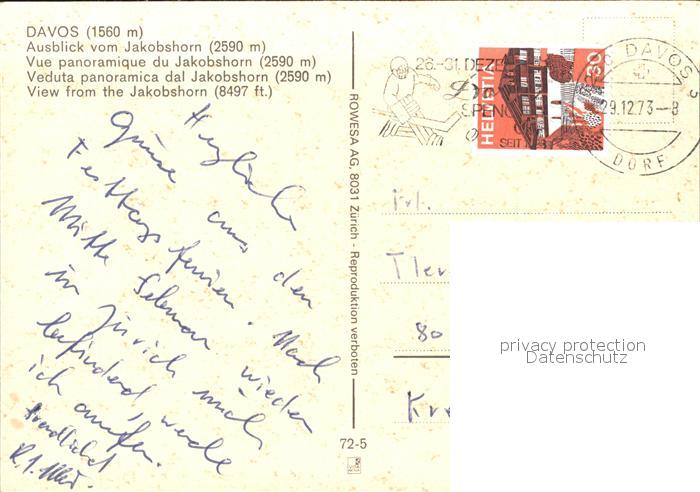 DAVOS (1560 m)
Ausblick vom Jakobshorn (2590 m)
Vue panoramique du Jakobshorn (2590 m)
Veduta panoramica dal Jakobshorn (2590 m)
View from the Jakobshorn (8497 ft.)
Herzliche
Grüsse aus den
Festtagsferien. Nach
Mitte Februar wieder
in Zürich mich
befindend, werde
ich anrufen.
ROWESA AG, 8031 Zürich - Reproduktion verboten
72-5
26.-31. DEZE
SPENG
SEIT
HELVETIA
30
DAVOS
29.12.73-8
DORF
Frl.
80
privacy protection
Datenschutz